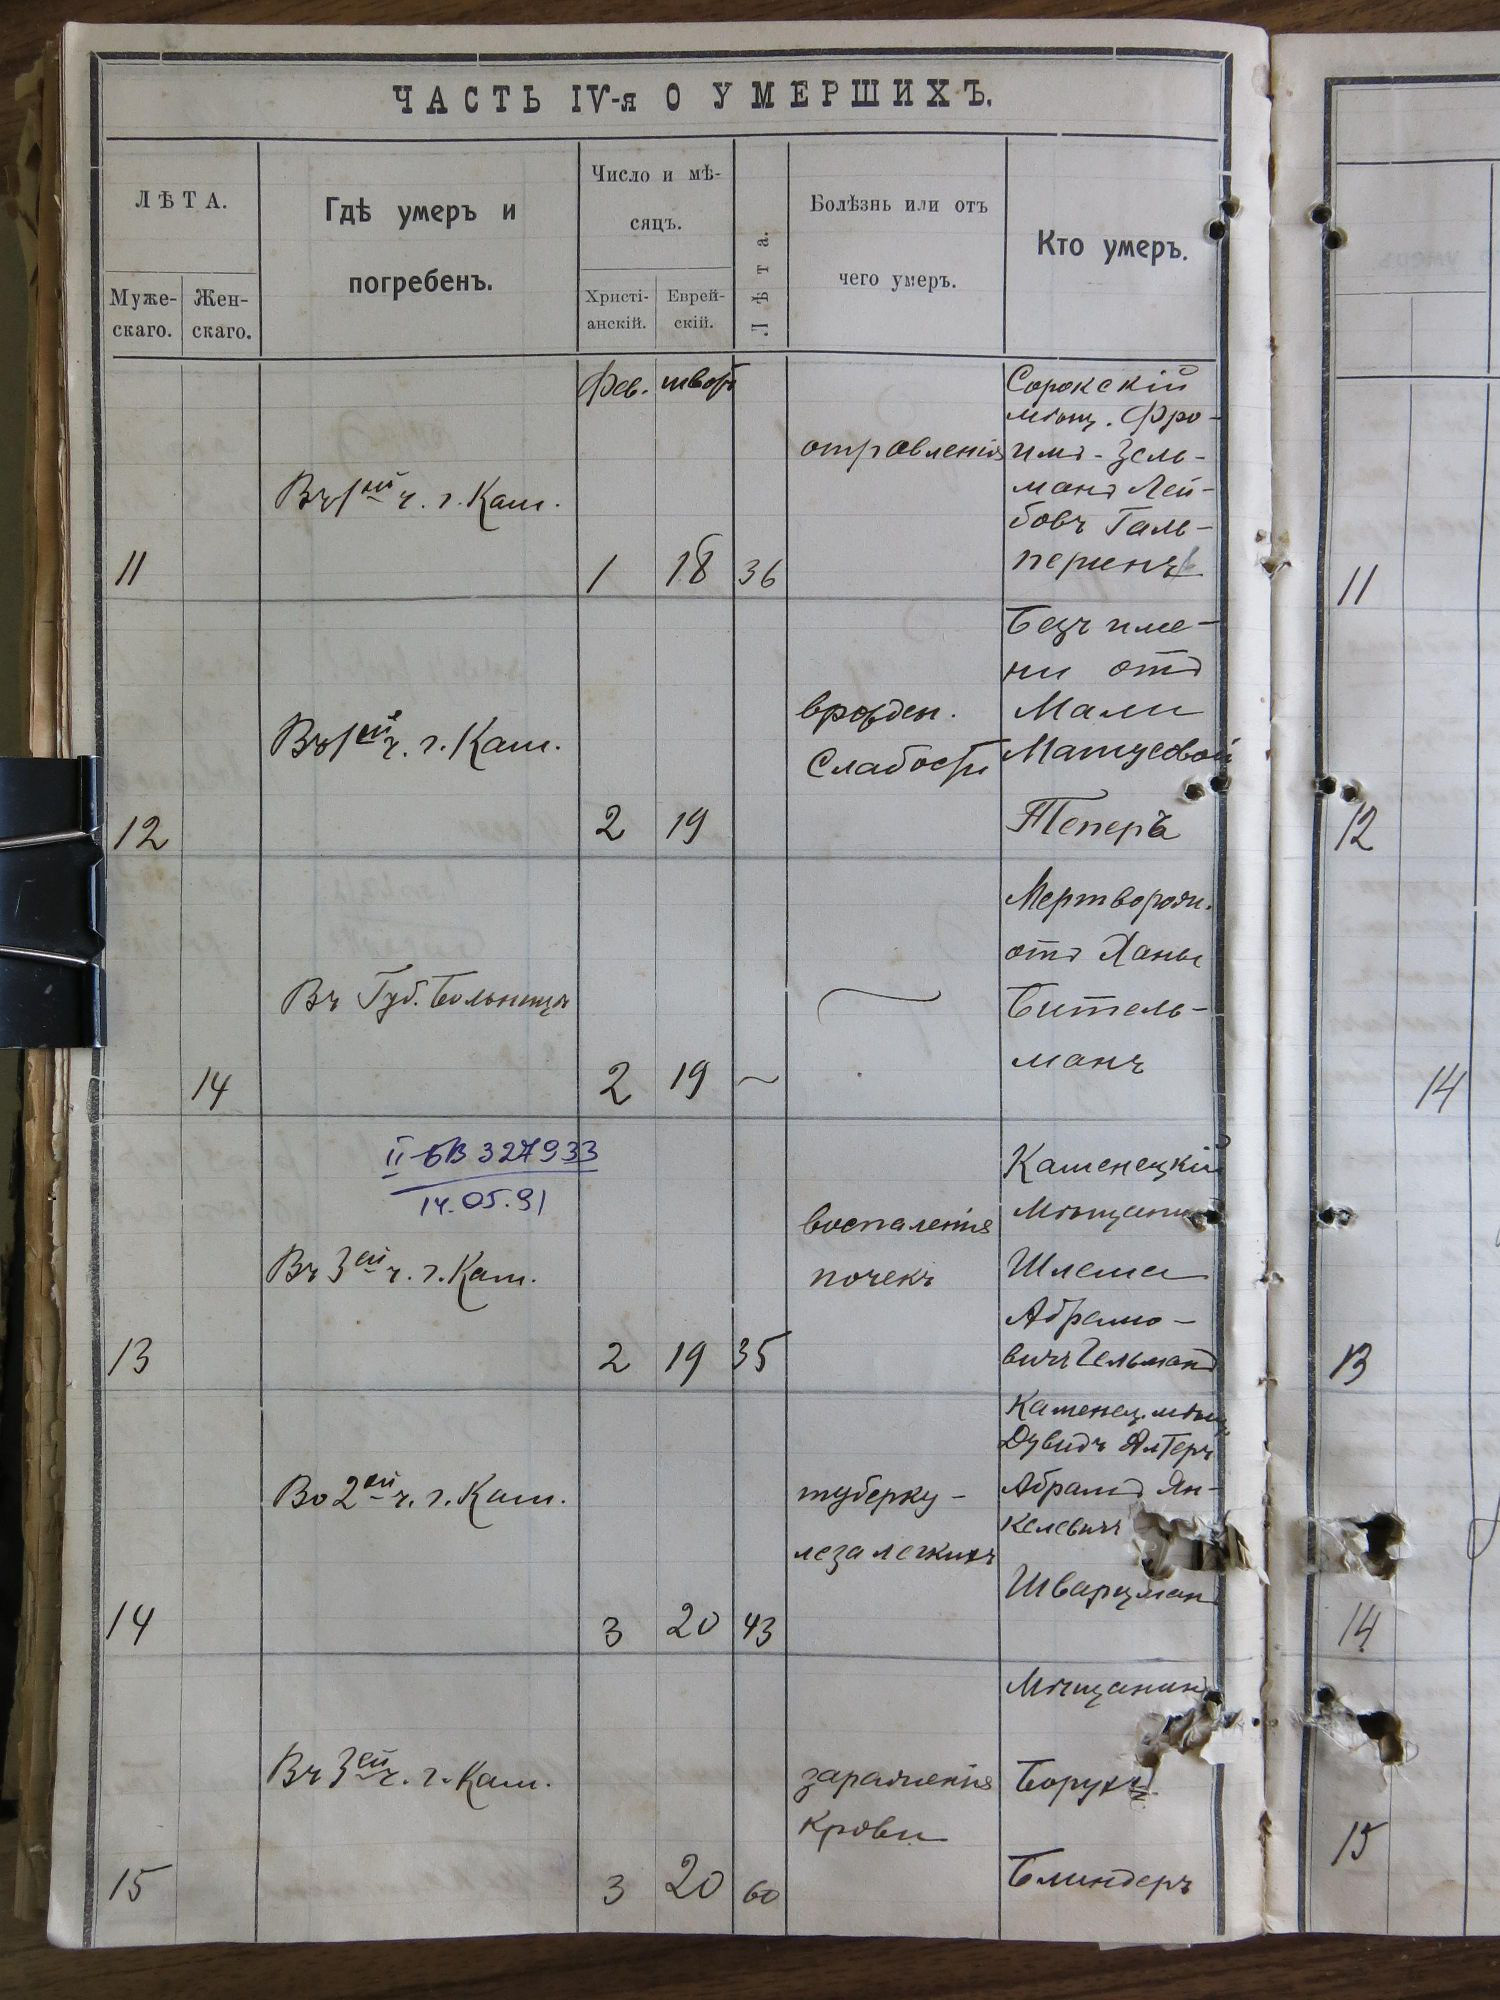 ЧАСТЬ IV-я О УМЕРШИХЪ.
ЛѢТА.
Муже-
скаго.
Жен-
скаго.
Гдѣ умеръ и
погребенъ.
Число и мѣ-
сяцъ.
Христі-
анскій.
Еврей-
скій.
Лѣта.
Болѣзнь или отъ
чего умеръ.
Кто умеръ.
Фев. швотъ
11
Въ 1ой ч. г. Кам.
1 18 36
отравленія
Сорокскій
мѣщ. Фро-
имъ-Зель-
манъ Лей-
бовъ Галь-
перинъ
11
12
Въ 1ой ч. г. Кам.
2 19
врожден.
Слабости
Безъ име-
ни отъ
Мали
Матусовой
Теперъ
12
14
Въ Губ. Больницѣ
2 19
Мертворожд.
отъ Ханы
Битель-
манъ
14
II-БВ 327933
14.05.91
13
Въ 3ей ч. г. Кам.
2 19 35
воспаленія
почекъ
Каменецкій
Мѣщанинъ
Шлема
Абрамо-
вичъ Гельманъ
13
14
Во 2ой ч. г. Кам.
3 20 43
туберку-
леза легкихъ
Каменец. мѣщ.
Дувидъ Алтеръ
Абрамъ Ян-
келевичъ
Шварцман
14
15
Въ 3ей ч. г. Кам.
3 20 60
зараженія
крови
Мѣщанинъ
Борухъ
Блиндеръ
15